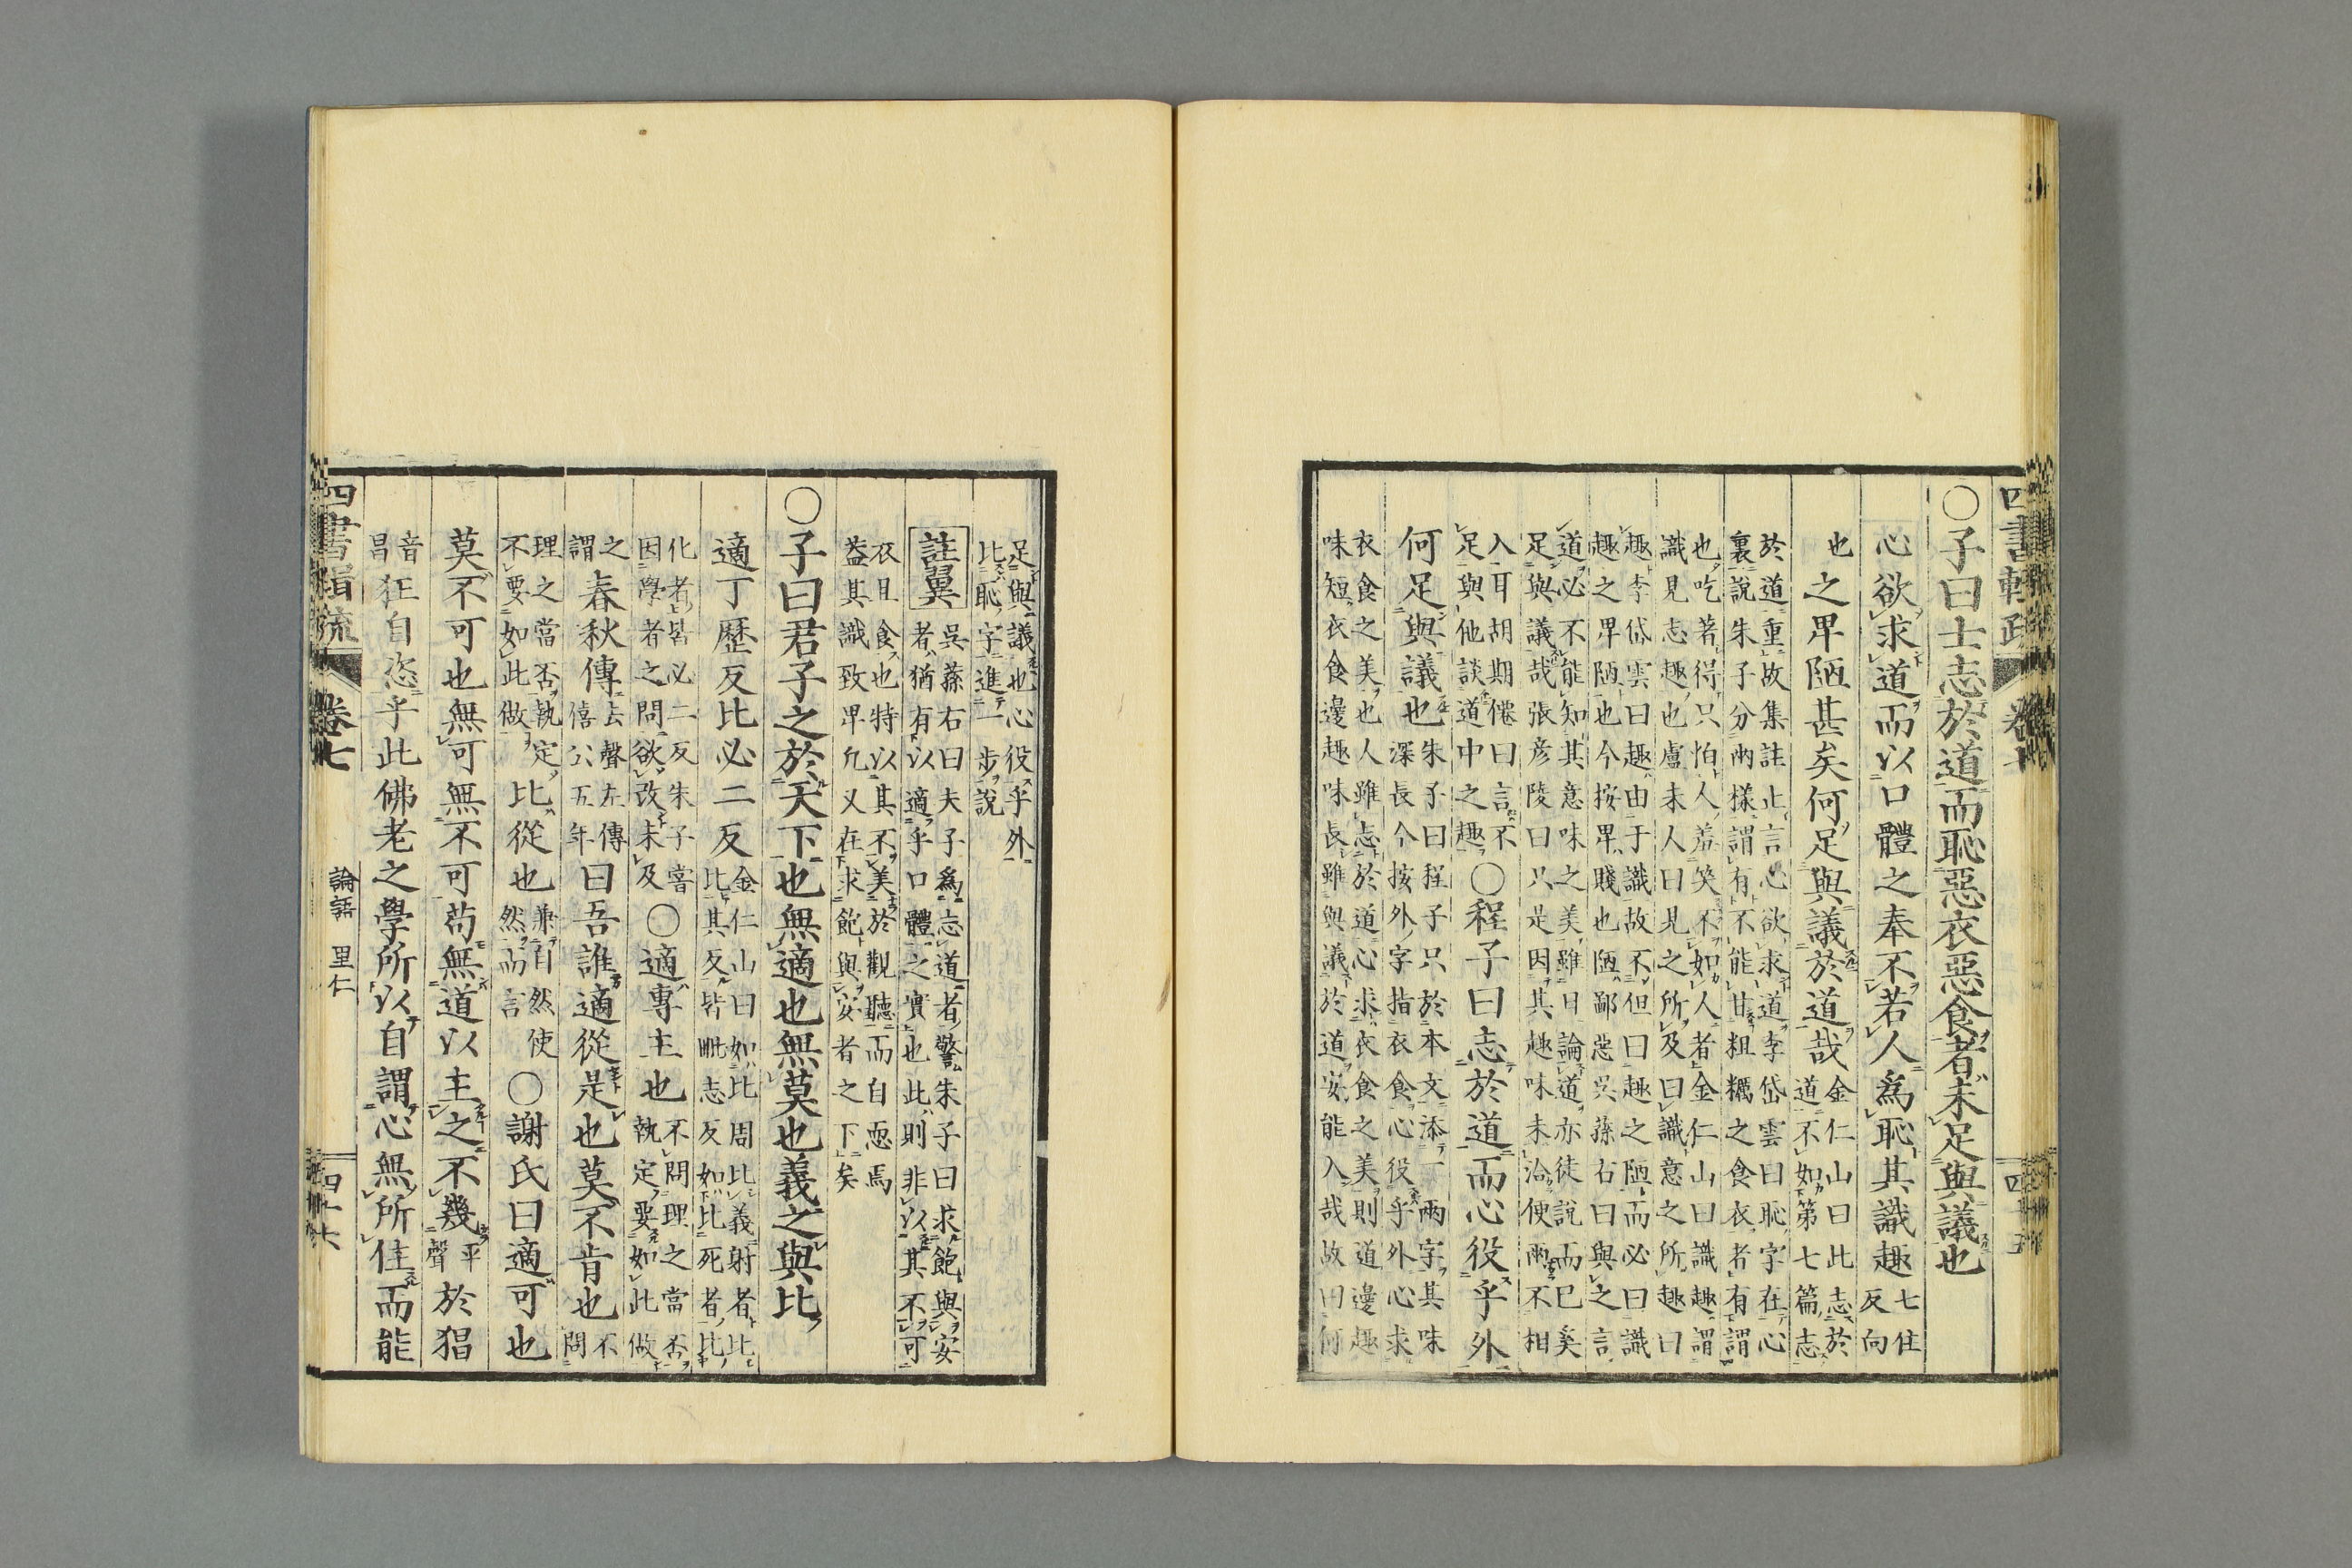 〇子曰士志於道而恥惡衣惡食者未足與議也
心欲求道而以口體之奉不若人爲恥其識趣七住
反向
也之卑陋甚矣何足與議於道哉金仁山曰此志於
道不如第七篇志
於道重故集註止言心欲求道李岱雲曰恥字在心
裏說朱子分兩樣謂有不能甘粗糲之食衣者有謂
也吃若得只怕人羞笑不如人者金仁山曰識趣謂
識見志趣也盧未人曰見之所及曰識意之所趣曰
趣李岱雲曰趣由于識故不但曰趣之陋而必曰識
趣之卑陋也今按卑賤也陋鄙惡吳蓀右曰與之言
道必不能知其意味之美雖日論道亦徒說而已矣
足與議哉張彦陵曰只是因其趣味未洽便兩不相
入耳胡期僊曰言不
足與他談道中之趣〇程子曰志於道而心役乎外
何足與議也朱子曰程子只於本文添一兩字其味
深長今按外字指衣食心役乎外心求
衣食之美也人雖志於道心求衣食之美則道邊趣
味短衣食邊趣味長雖與議於道安能入哉故曰何
足與議也心役乎外
比恥字進一步說
註翼吳蓀右曰夫子爲志道者警朱子曰求飽與安
者猶有以適乎口體之實也此則非以其不可
衣且食也特以其不美於觀聽而自恧焉
葢其識致卑凡又在求飽與安者之下矣
〇子曰君子之於天下也無適也無莫也義之與比
適丁歷反比必二反金仁山曰如比周比義射者比
比其反皆毗志反如比死者比
化者皆必二反朱子嘗
因學者之問欲改未及〇適專主也不問理之當否
執定要如此做
之春秋傳去聲左傳
謂僖公五年曰吾誰適從是也莫不肯也不
問
理之當否執定
不要如此做比從也兼自然使
然而言〇謝氏曰適可也
莫不可也無可無不可苟無道以主之不幾平
聲於猖
音
昌狂自恣乎此佛老之學所以自謂心無所住而能
卷七
論語 里仁
四十六